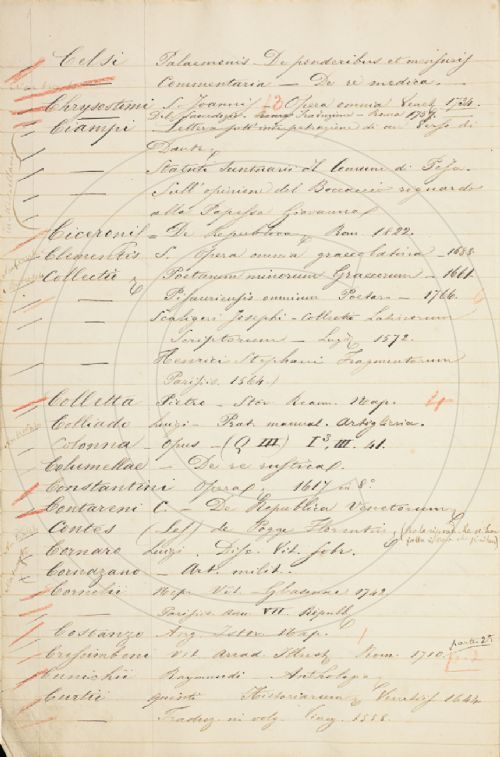 Celsi Palaemonis De ponderibus et mensuris
— Commentaria — De re medica.
Chrysostomi S. Joannis 13 Opera omnia Venet. 1734.
Ciampi Lettera sull' interpretazione di un verso di
Dante
— Statuti Suntuarii del Comune di
— Sull' opinione del Boccaccio riguardo
alla Papessa Giovanna
Ciceronis — De Republica Rom. 1822.
Clementis S. Opera omnia graecolatina — 1688
Collectio Poetarum minorum Graecorum — 1611.
— Pisauriensis omnium Poetar. — 1766.
— Scaligeri Josephi — Collecta Latinorum
Scriptorum — Lugd. 1572.
— Henrici Stephani Fragmentorum
Parisis. 1564.
Colletta Pietro — Stor. Ream. Nap. 4
Colliado Luigi — Prat. manual. Artiglieria.
Colonna — Opus — (Q III) I³. III. 41.
Columellae — De re rustica.
Constantini Opera. 1617 in 8°
Contareni C. — De Republica Venetorum
Contes de Pogge Florentin
Cornaro Luigi. Disc. Vit. sobr.
Cornazano — Art. milit.
Cornelii Nep. Vit. 1742
— Parisiis Ann. VII. Républ.
Costanzo Ang. Istor. Nap. 1
Crescimbeni Vit. Arcad. Illust. Rom. 1710. parte 2ª
Cunichii Raymundi — Anthologia
Curtii Quinti Historiarum 1644
— Traduz. in volg. 1558.